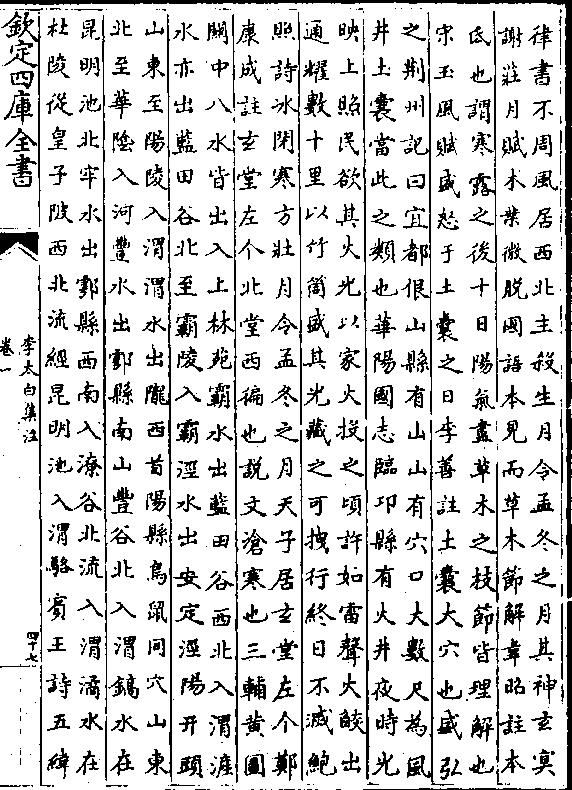 律書不周風居西北主殺生月令孟冬之月其神玄冥
謝莊月賦木葉微脱國語本見而草木節解韋昭註本
氐也謂寒露之後十日陽氣盡草木之枝節皆理解也
宋玉風賦盛怒于土囊之口李善註土囊大穴也盛弘
之荆州記曰宜都佷山縣有山山有穴口大數尺為風
井土囊當此之類也華陽國志臨邛縣有火井夜時光
映上照民欲其火光以家火投之頃許如雷聲火燄出
通耀數十里以竹筒盛其光藏之可拽行終日不滅鮑
照詩冰閉寒方壯月令孟冬之月天子居玄堂左个鄭
康成註玄堂左个北堂西偏也説文滄寒也三輔黄圖
關中八水皆出入上林苑霸水出藍田谷西北入渭滻
水亦出藍田谷北至霸陵入霸涇水出安定涇陽幵頭
山東至陽陵入渭渭水出隴西首陽縣鳥鼠同穴山東
北至華陰入河豐水出鄠縣南山豐谷北入渭鎬水在
昆明池北牢水出鄠縣西南入潦谷北流入渭潏水在
杜陵從皇子陂西北流經昆明池入渭駱賓王詩五緯
欽定四庫全書
李太白集注
卷一
四十七